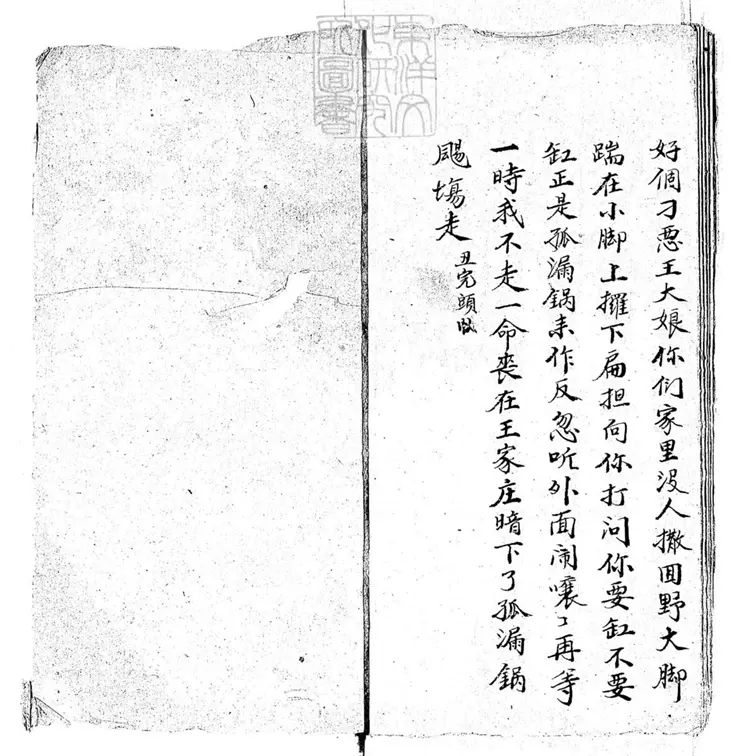 好個刁恶王大娘你们家里没人撒田野大脚
踹在小脚上摧下扁担向你打问你要缸不要
缸正是孤漏锅来作反忽听外面闹嚷〻再等
一時我不走一命丧在王家庄暗下了孤漏鍋
颺塲走
丑完頭
東洋文
化研究
所圖書